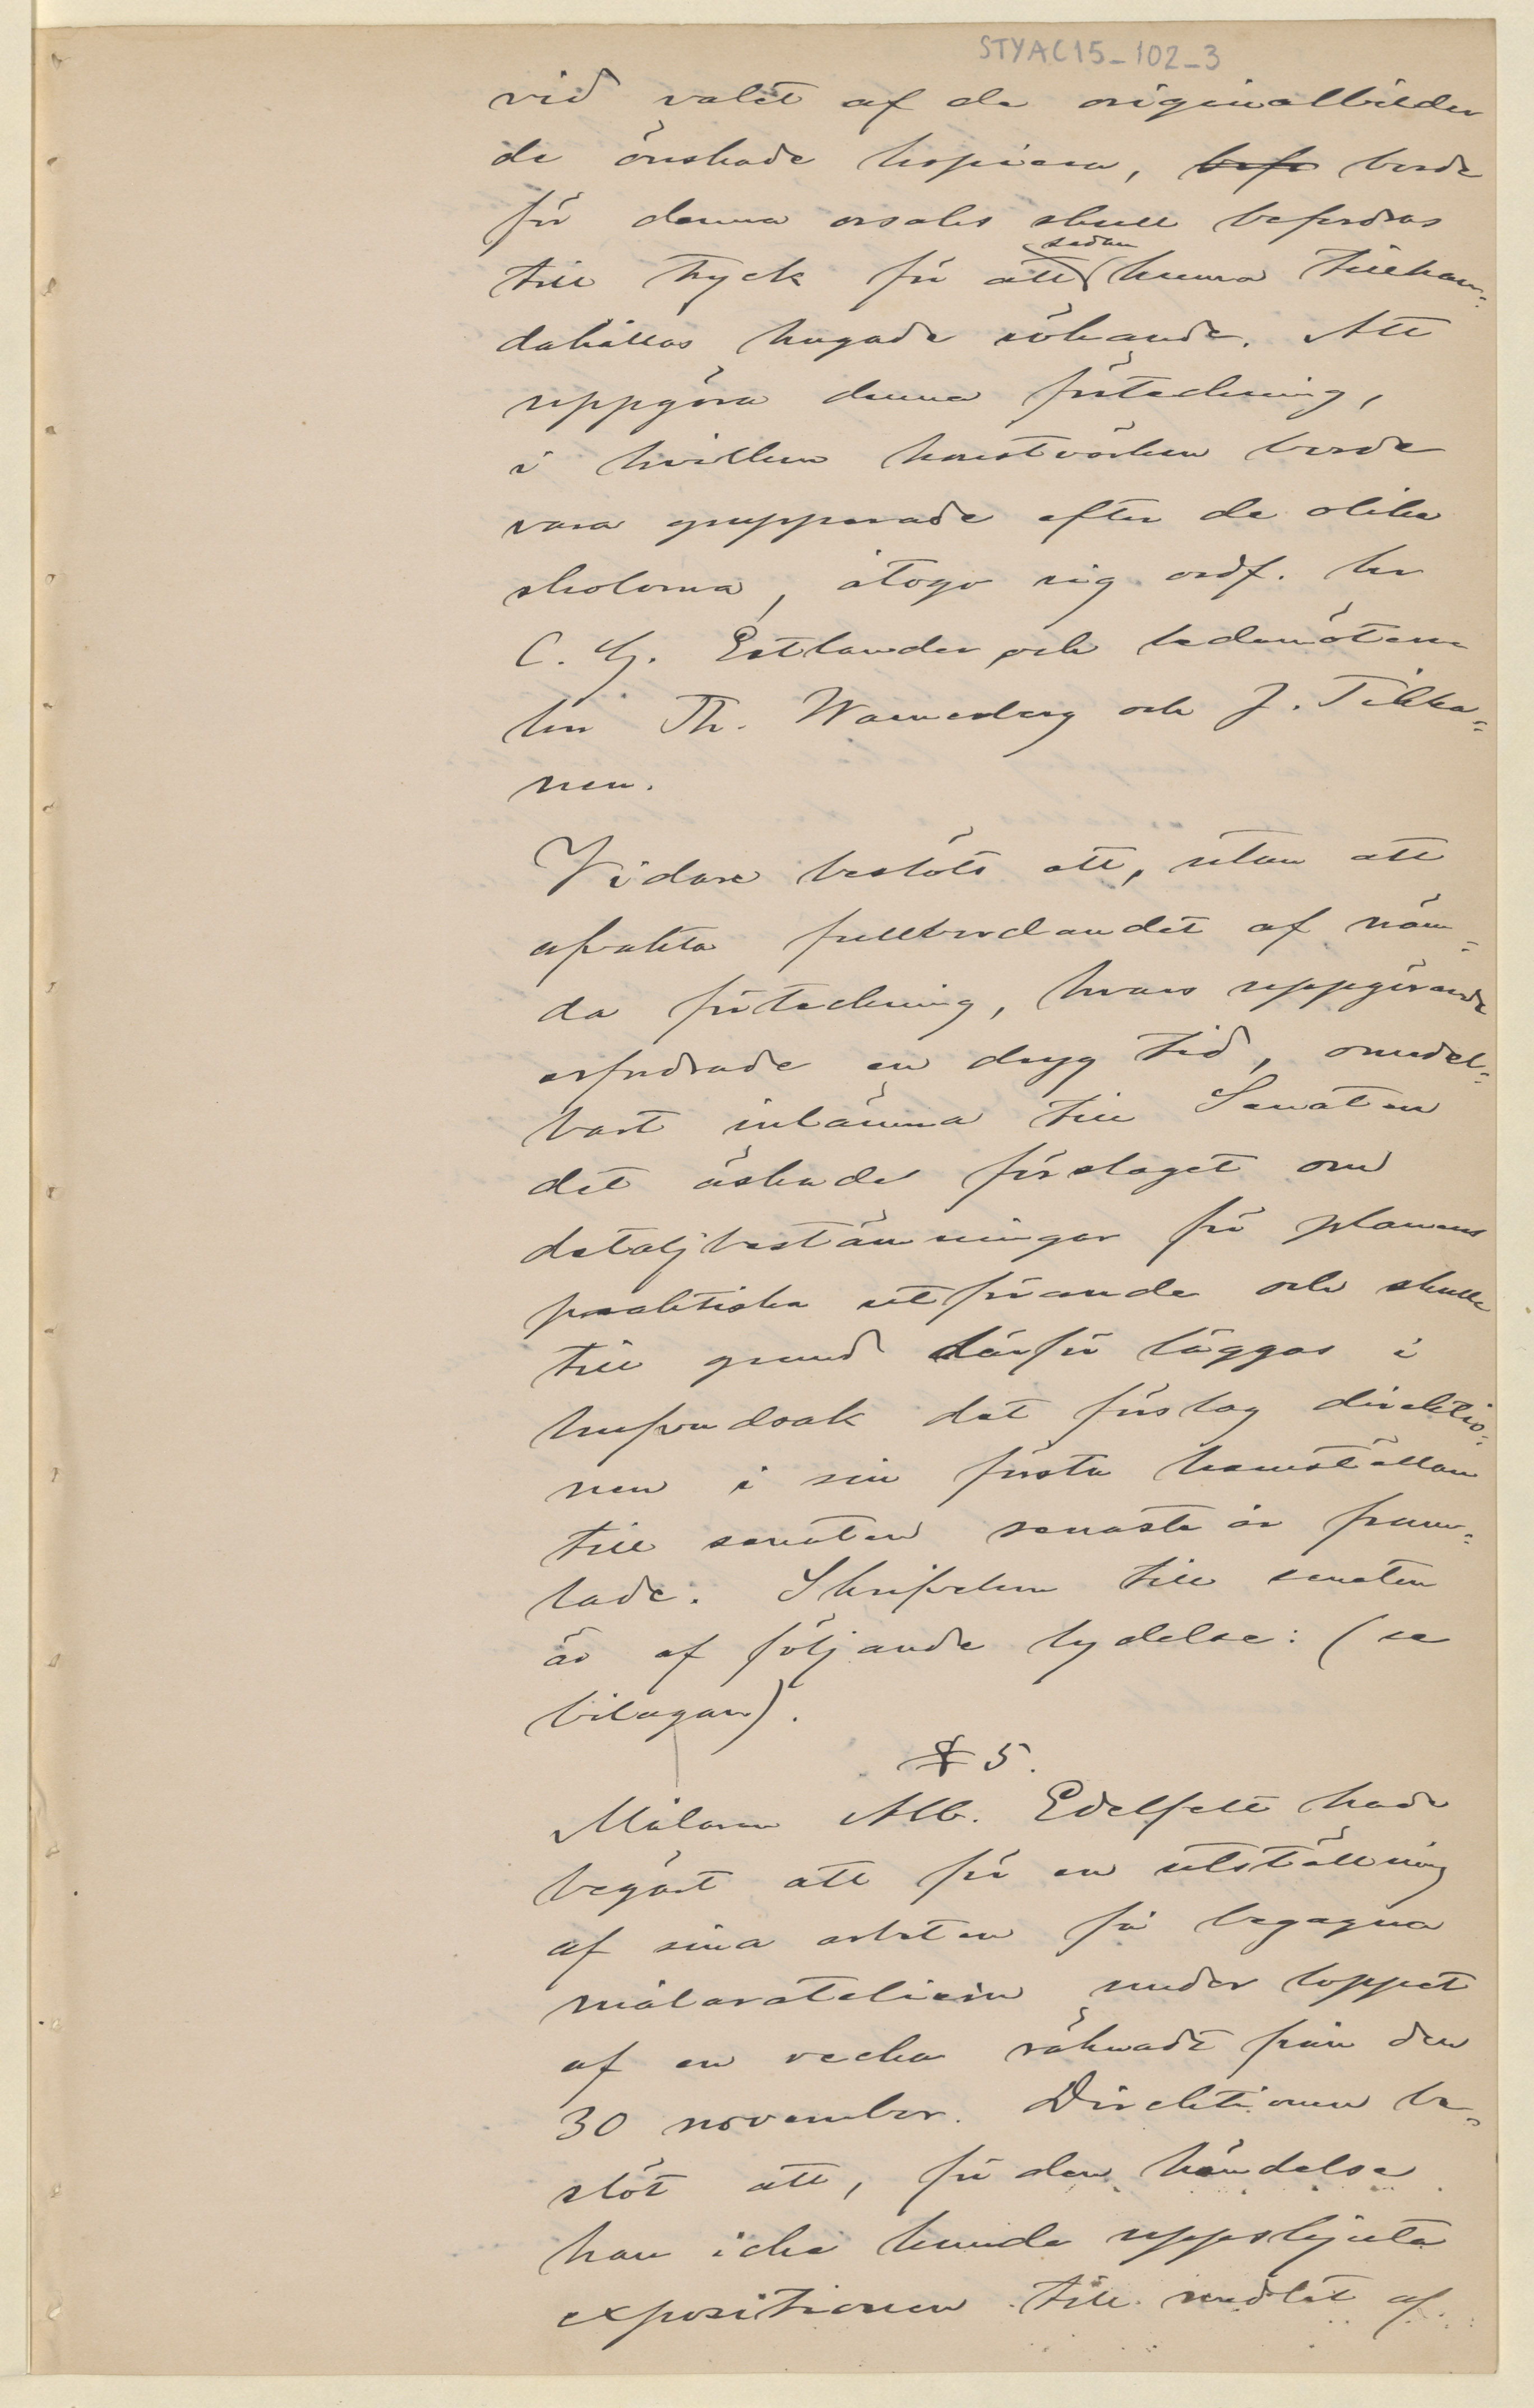 STYAC15_102_3
vid valet af de originalbilder
de önskade kopiera, befo borde
för denna orsaks skull befordras
till tryck för att sedan kunna tillhan-
dahållas hugade sökande. Att
uppgöra denna förteckning,
i hvilken konstvärken borde
vara grupperade efter de olika
skolorna, åtogo sig ordf. hr
C. G. Estlander och ledamöterne
hrr Th. Waenerberg och J. Tikka-
nen.
Vidare beslöts att, utan att
afvakta fullbordandet af näm-
da förteckning, hvars uppgörande
erfordrade en dryg tid, omedel-
bart inlämna till Senaten
det äskade förslaget om
detaljbestämningar för planens
praktiska utförande och skulle
till grund därför läggas i
hufvudsak det förslag direktio-
nen i sin första hemställan
till senaten senaste år fram-
lade. Skrifvelsen till senaten
är af följande lydelse: (se
bilagan).
§ 5.
Målaren Alb. Edelfelt hade
begärt att för en utställning
af sina arbeten få begagna
målarateliern under loppet
af en vecka räknadt från den
30 november. Direktionen be-
slöt att, för den händelse
han icke kunde uppskjuta
expositionen till midlet af